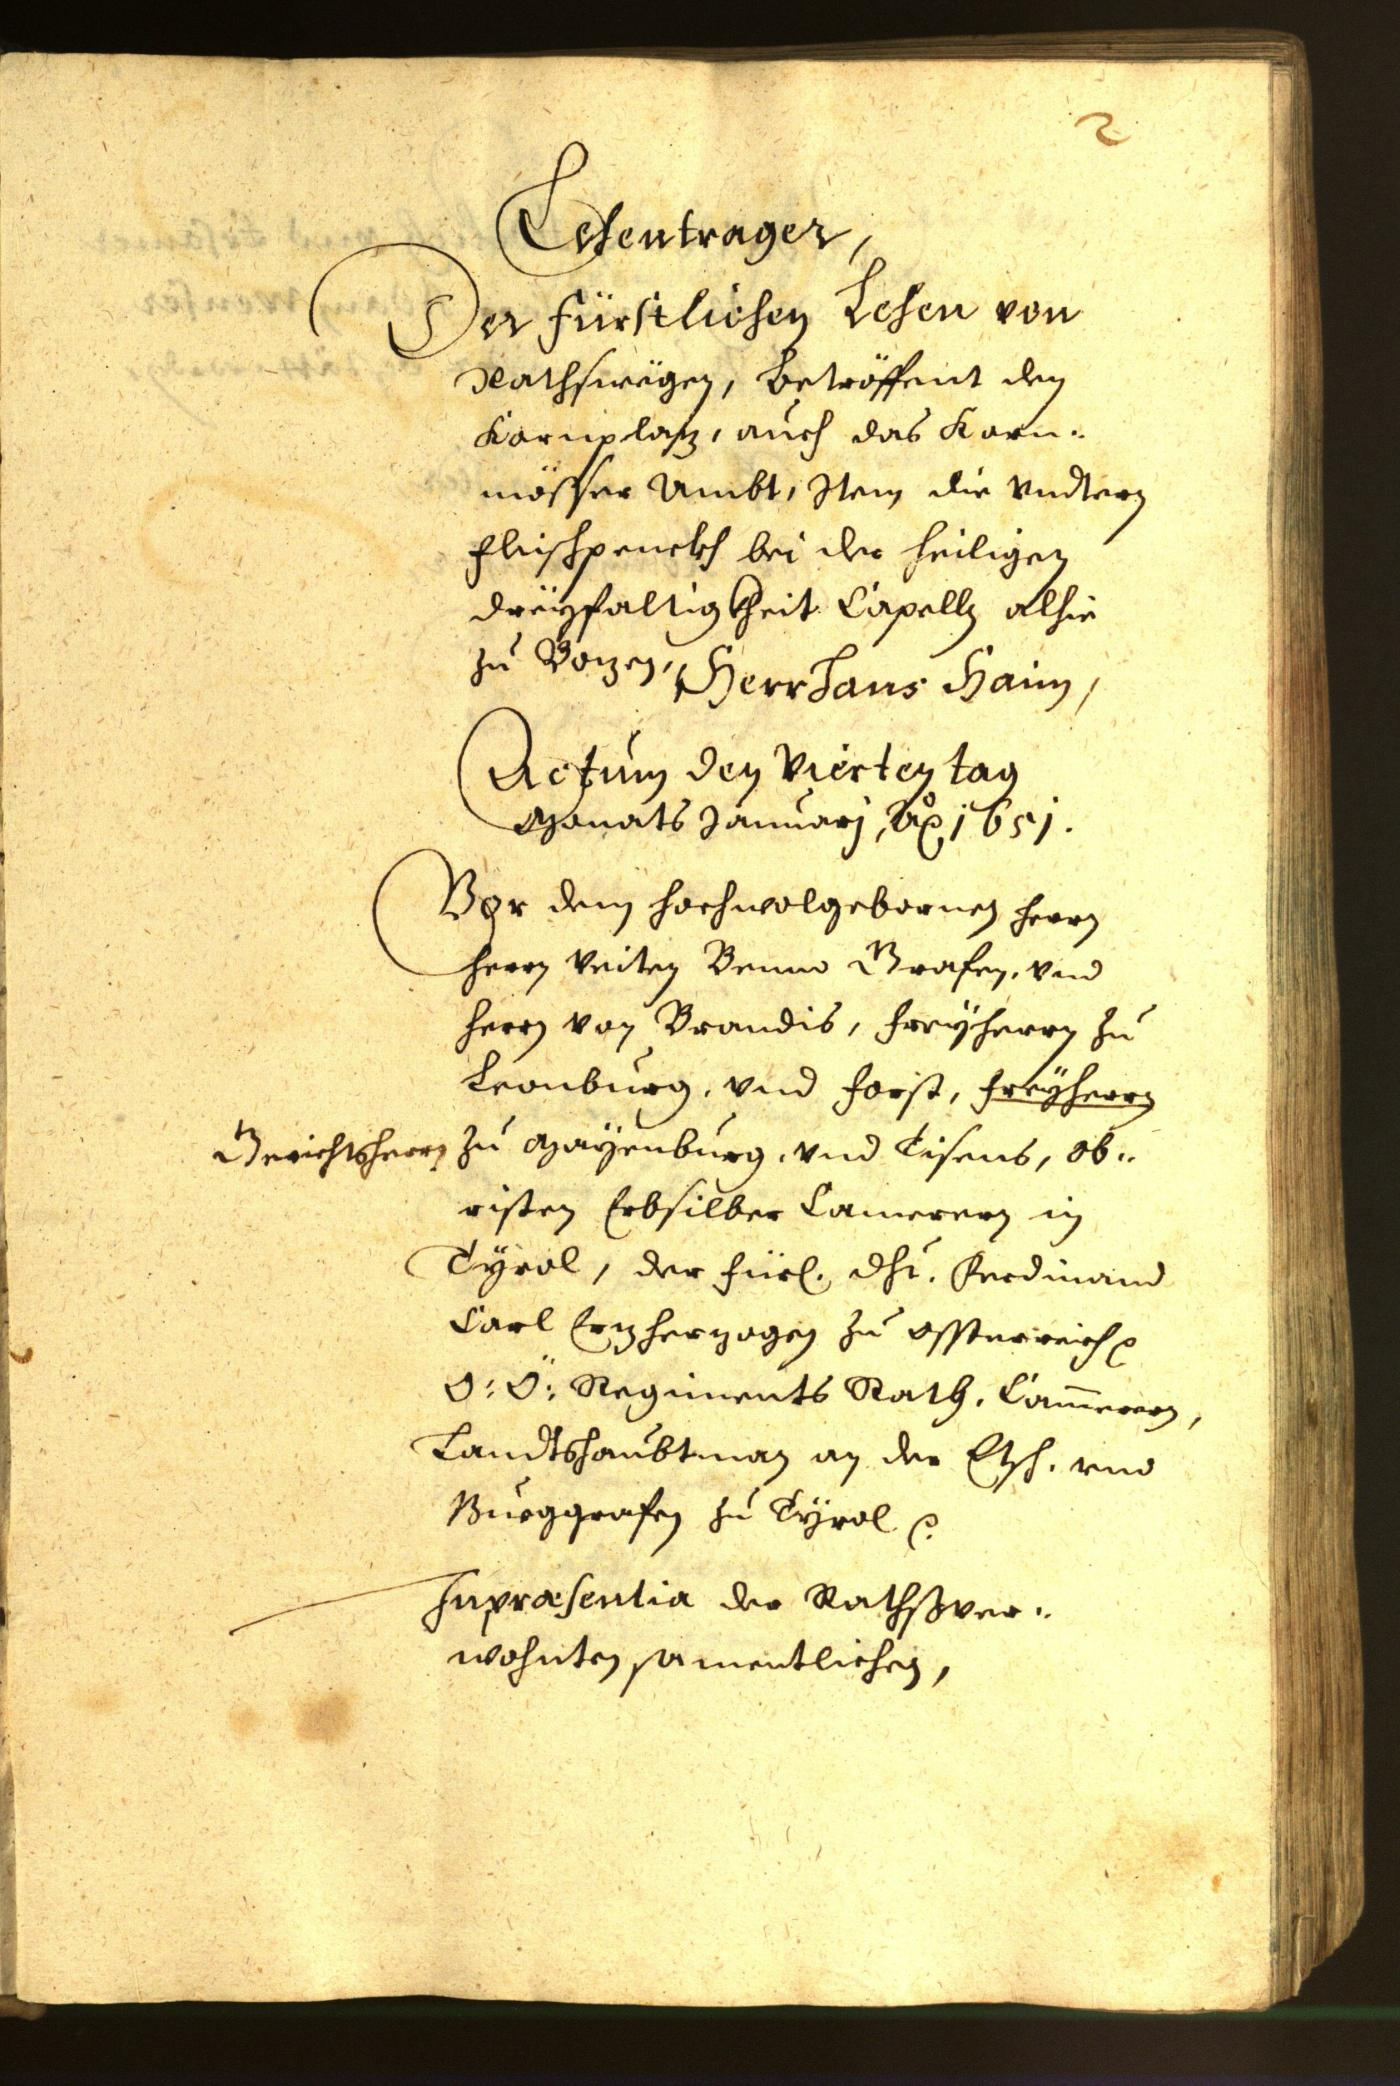 2
Lehentrager,
Der Fürstlichen Lehen von
Rathswëgen, betröffent den
Kornplatz, auch das Korn-
mösser Ambt, Item die Undtern
Fleischpenckh bei der heiligen
dreÿfaltigkheit Capelln alhie
zu Bozen, Herr Hans Haim,
Actum den Vierten tag
Monats Januarj, Ao 1651.
Vor dem hochwolgebornen herrn
herrn Veiten Benno Grafen, vnd
herrn von Brandis, Freÿherrn zu
Leonburg, vnd Forst, Freÿherrn
Gerichtsherrn zu Mayenburg, vnd Tisens, Ob-
risten Erbsilber Camerern in
Tÿrol, der Fürl. Dht. Ferdinand
Carl Erzherzogen zu Össterreich
O: Ö: Regiments Rath, Cammerern,
Landtshaubtman an der Etsch, vnd
Burggrafen zu Tÿrol
In præsentia der Rathsver-
wohnten samentlichen,